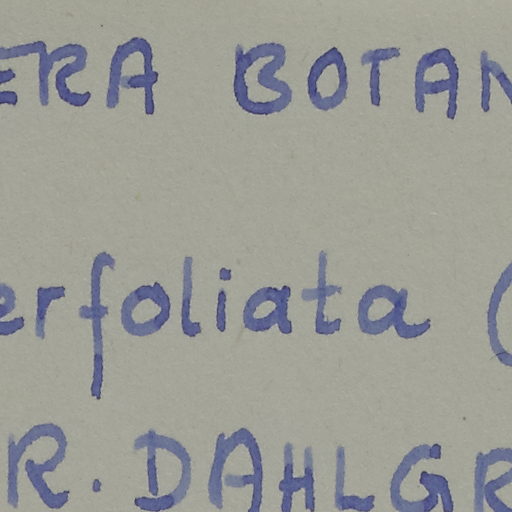 ERA BOTAN
erfoliata (
R. DAHLGR